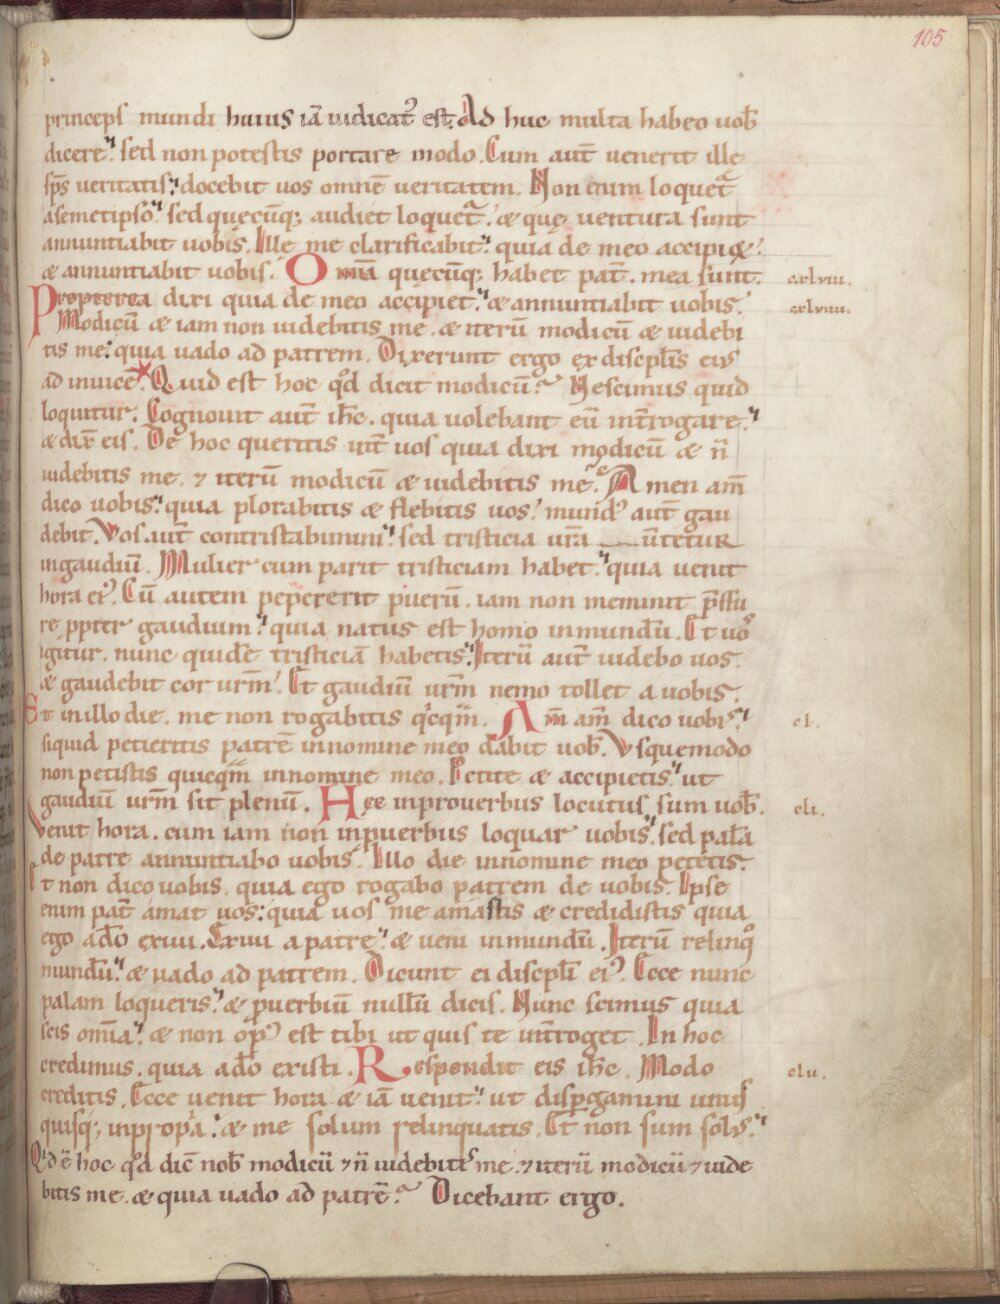 105
princeps mundi huius iā iudicat᷒ est. Ad huc multa habeo uob̄
dicere. sed non potestis portare modo. Cum aut̄ uenerit ille
sp̄s ueritatis. docebit uos omnē ueritatem. Non enim loquet᷒
asemetipso. sed quęcūq; audiet loquet᷒. & quę uentura sunt
annuntiabit uobis. Ille me clarificabit. quia de meo accipi&.
& annuntiabit uobis. Omīa quęcūq; habet pat̄. mea sunt. cxlviii.
Propterea dixi quia de meo accipiet. & annuntiabit uobis. cxlviiii.
Modicū & iam non uidebitis me. & iterū modicū & uidebi
tis me. quia uado ad patrem. Dixerunt ergo ex discipl̄is ei᷒
ad inuicē. Quid est hoc qd̄ dicit modicū. Nescimus quid
loquitur. Cognouit aut̄ ihc̄. quia uolebant eū int̄rogare.
& dix̄ eis. De hoc queritis int̄ uos quia dixi modicū & n̄
uidebitis me. ⁊ iterū modicū & uidebitis me. Amen am̄
dico uobis. quia plorabitis & flebitis uos. mund᷒ aut̄ gau
debit. Vos aut̄ contristabimini. sed tristicia ur̄a uert̄etur
ingaudiū. Mulier cum parit tristiciam habet. quia uenit
hora ei᷒. Cū autem pepererit puerū. iam non meminit p̄ssu
re ꝓpter gaudium. quia natus est homo inmundū. Et uos
igitur. nunc quidē tristiciā habetis. Iterū aut̄ uidebo uos.
& gaudebit cor urm̄. Et gaudiū urm̄ nemo tollet a uobis.
Et in illo die. me non rogabitis qicqm̄. Am̄ am̄ dico uobis. cl.
siquid petieritis patrē innomine meo dabit uob̄. Vsquemodo
non petistis quicqm̄ innomine meo. Petite & accipietis. ut
gaudiū urm̄ sit plenū. Hęc inprouerbiis locutus sum uob̄. cli.
Venit hora. cum iam non inꝓuerbiis loquar uobis. sed palā
de patre annuntiabo uobis. Illo die innomine meo petetis.
Et non dico uobis. quia ego rogabo patrem de uobis. Ipse
enim pat̄ amat uos. quia uos me amastis & credidistis quia
ego adō exiui. Exiui a patre. & ueni inmundū. Iterū relinqo
mundū. & uado ad patrem. Dicunt ei discipl̄i ei᷒. Ecce nunc
palam loqueris. & ꝓuerbiū nullū dicis. Nunc scimus quia
scis omīa. & non op᷒ est tibi ut quis te int̄roget. In hoc
credimus. quia adō existi. Respondit eis ihc̄. Modo clii.
creditis. Ecce uenit hora & iā uenit. ut disꝑgamini unus
quisq; inpropia. & me solum relinquatis. Et non sum sol᷒.
Qid ē hoc qd̄ dic̄ nob̄ modicū ⁊ n̄ uidebitis me. ⁊ iterū modicū ⁊ uide
bitis me. & quia uado ad patrē. Dicebant ergo.